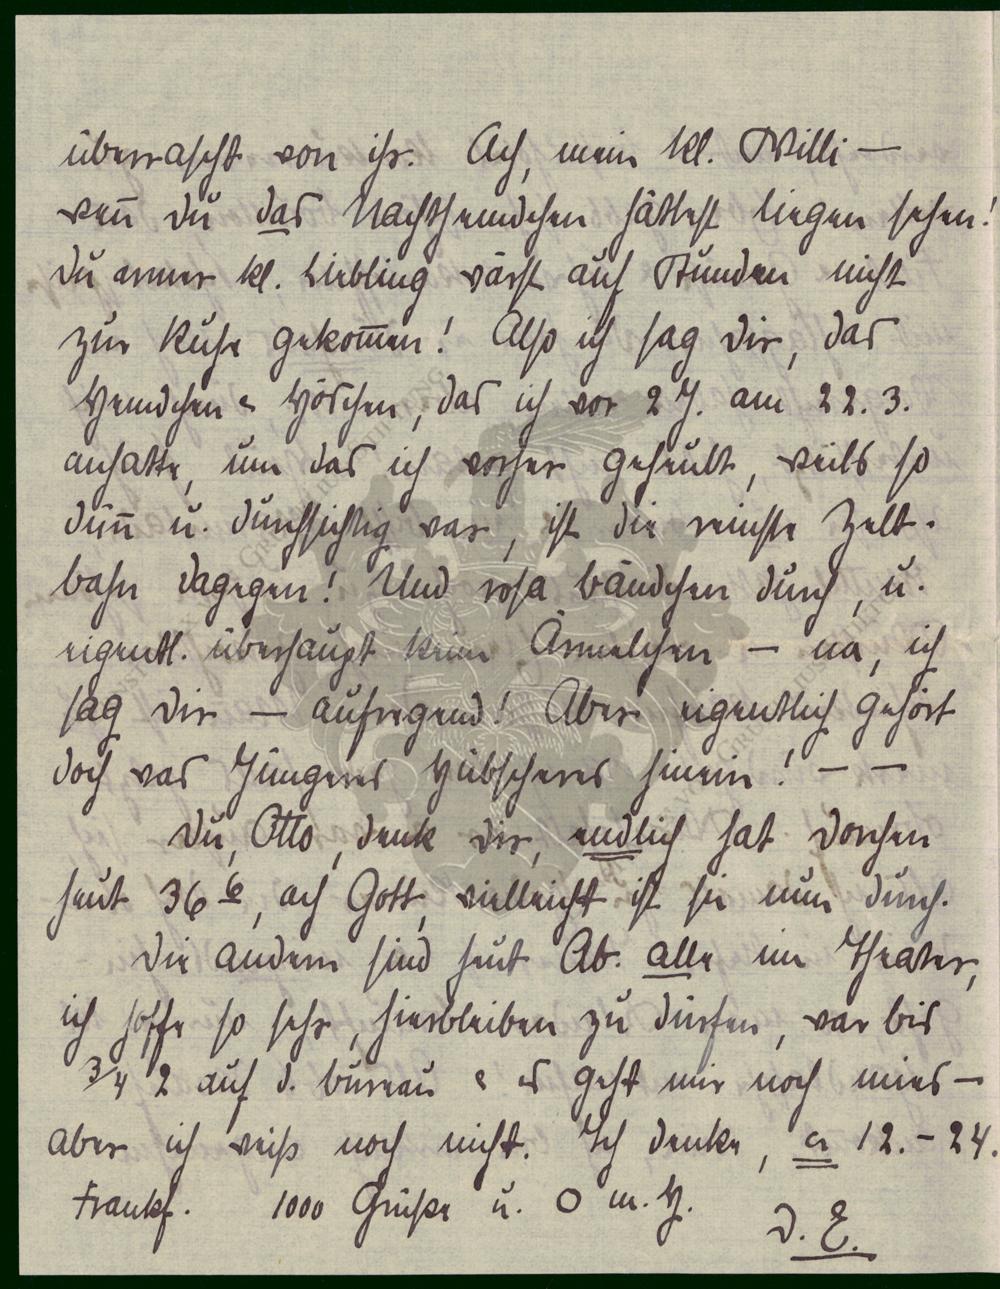 überrascht von ihr. Ach, mein kl. Willi —
wen̄ du das Nachthemdchen hättest liegen sehen!
du armer kl. Liebling wärst auf Stunden nicht
zur Ruhe gekom̄en! Also ich sag dir, das
Hemdchen & Höschen, das ich vor 2 J. am 22. 3.
anhatte, um das ich vorher geheult, weils so
dün̄ u. durchsichtig war, ist die reinste Zelt-
bahn dagegen! Und rosa Bändchen durch, u.
eigentl. überhaupt keine Ärmelchen — na, ich
sag dir — aufregend! Aber eigentlich gehört
doch was Jüngeres Hübscheres hinein! — —
Du, Otto, denk dir, endlich hat Dorchen
heut 36 6, ach Gott, vielleicht ist sie nun durch.
Die andern sind heut Ab. alle im Theater,
ich hoffe so sehr, hierbleiben zu dürfen, war bis
3/4 2 auf d. Bureau & es geht mir noch mies —
aber ich weiß noch nicht. Ich denke, ca 12. - 24.
Frankf. 1000 Grüße u. O m. H.
D. E.